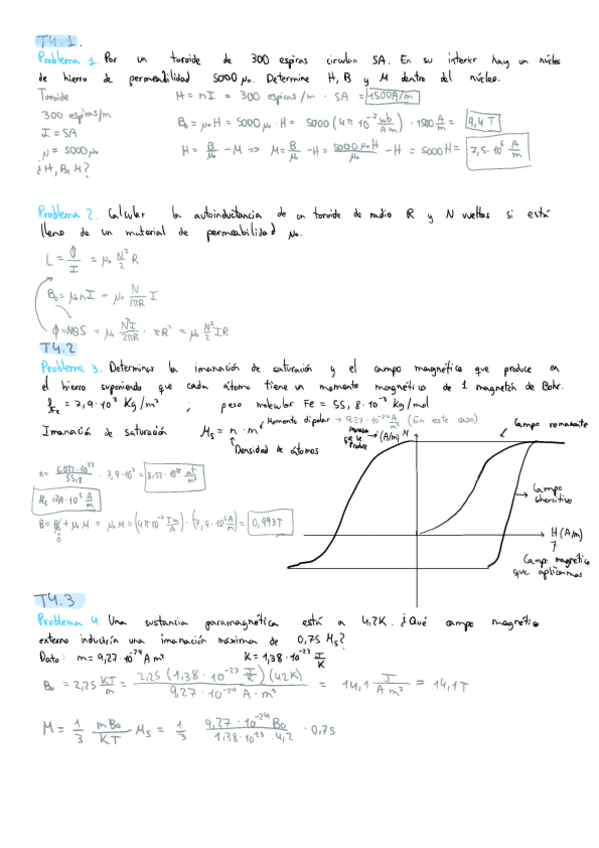 T4.1.
Problema 1. Por un toroide de 300 espiras circulan 5A. En su interior hay un núcleo
de hierro de permeabilidad 5000 μ₀. Determine H, B y M dentro del núcleo.
Toroide H = nI = 300 espiras/m · 5A = 1500A/m
300 espiras/m
I = 5A
B₀ = μ₀H = 5000μ₀ · H = 5000 (4π 10⁻⁷ Wb/A·m) · 1500 A/m = 9,4 T
μ = 5000μ₀
H = B/μ₀ - M => M = B/μ₀ - H = 5000μ₀H/μ₀ - H = 5000H = 7,5·10⁶ A/m
¿H, B, M?
Problema 2. Calcular la autoinductancia de un toroide de radio R y N vueltas si está
lleno de un material de permeabilidad μ₀.
L = ϕ/I = μ₀ N²/2 R
B₀ = μ₀nI = μ₀ N/2πR I
ϕ = NBS = μ₀ N²I/2πR · πR² = μ₀ N²/2 IR
T4.2
Problema 3. Determinar la imanación de saturación y el campo magnético que produce en
el hierro suponiendo que cada átomo tiene un momento magnético de 1 magnetón de Bohr.
ρFe = 7,9·10³ Kg/m³ ; peso molecular Fe = 55,8·10⁻³ Kg/mol
Imanación de saturación Ms = n · m
Momento dipolar → 9,27·10⁻²⁴ A/m² (En este caso)
Densidad de átomos
(A/m) M
Campo remanente
n = 6,022·10²³/55,8 · 7,9·10³ = 8,52·10²⁸ at/m³
Ms = 7,9·10⁵ A/m
B = B₀ + μ₀M = μ₀M = (4π10⁻⁷ Tm/A) · (7,9·10⁵ A/m) = 0,993T
0
Campo coercitivo
H (A/m)
Campo magnético
que aplicamos
T4.3
Problema 4. Una sustancia paramagnética está a 4,2K. ¿Qué campo magnético
externo induciría una imanación máxima de 0,75 Ms?
Dato: m = 9,27·10⁻²⁴ A m² K = 1,38·10⁻²³ J/K
B₀ = 2,25 KT/m = 2,25 (1,38·10⁻²³ J/K)(4,2K)/9,27·10⁻²⁴ A·m² = 14,1 J/A m² = 14,1T
M = 1/3 mB₀/KT Ms = 1/3 9,27·10⁻²⁴ B₀/1,38·10²³ · 4,2 · 0,75